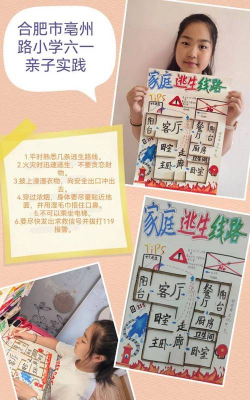 合肥市亳州
路小学六一
亲子实践
1.平时熟悉几条逃生路线。
2.火灾时迅速逃生，不要贪恋财
物。
3.披上浸湿衣物，向安全出口冲出
去。
4.穿过浓烟，身体要尽量贴近地
面，并用湿毛巾捂住口鼻。
5.不可以乘坐电梯。
6.要尽快发出求救信号并拨打119
报警。
家庭逃生线路
TiPS
阳台
客厅
餐厅
厨房
卧室
主卧
走廊
卫生间
家庭逃生线路
TiPS
阳台
客厅
餐厅
厨房
卧室
走廊
卫生间
主卧
卧室